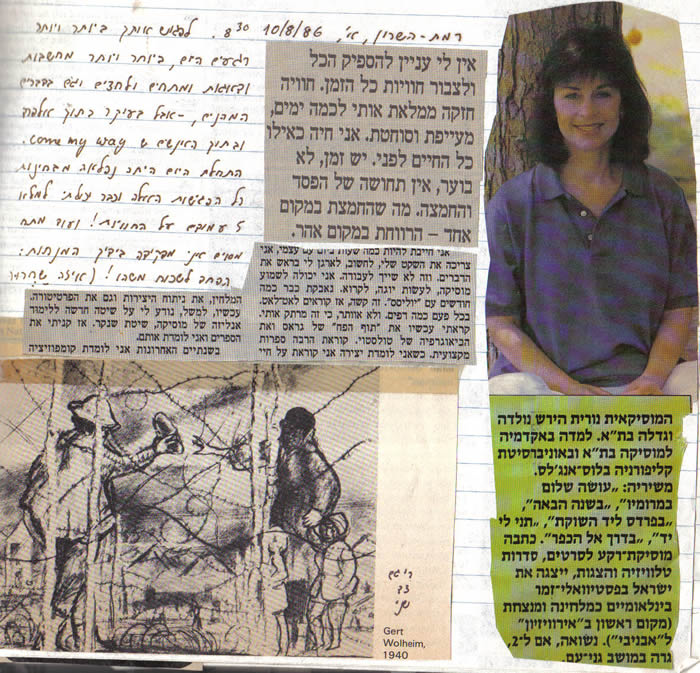 רמת-השרון, א', 10/8/86 8.30 לפגוש אותך ביותר ויותר
רגעים היום, ביותר ויותר מחשבות
ומתחים ולחצים וגם בדברים
המכנים, – אבל בעיקר בתוך
ובתוך האנשים ש come my way.
התחלת היום היתה נפלאה מבחינת
כל הפגישות האלה וכבר יכולתי למלא
5 עמודים על החוויות! ועוד מתח
מסוים אני מפקידה בידיך המנחות:
הפחד לשכוח משהו! (איזה שחרור
אין לי עניין להספיק הכל
ולצבור חוויות כל הזמן. חוויה
חזקה ממלאת אותי לכמה ימים,
מעייפת וסוחטת. אני חיה כאילו
כל החיים לפני. יש זמן, לא
בוער, אין תחושה של הפסד
והחמצה. מה שהחמצת במקום
אחד – הרווחת במקום אחר.
אני חייבת להיות כמה שעות ביום עם עצמי. אני
צריכה את השקט שלי, לחשוב, לארגן לי בראש את
הדברים. וזה לא שייך לעבודה. אני יכולה לשמוע
מוסיקה, לעשות יוגה, לקרוא. נאבקת כבר כמה
חודשים עם "יוליסס". זה קשה, אז קוראים לאט־לאט.
בכל פעם כמה דפים. ולא אוותר, כי זה מרתק אותי.
קראתי עכשיו את "תוף הפח" של גראס ואת
הביוגרפיה של טולסטוי. קוראת הרבה ספרות
מקצועית. כשאני לומדת יצירה אני קוראת על חיי
המלחין, את ניתוח היצירות וגם את הפרטיטורה.
עכשיו, למשל, נודע לי על שיטה חדשה ללימוד
אנליזה של מוסיקה, שיטת שנקר. אז קניתי את
הספרים ואני לומדת אותם.
בשנתיים האחרונות אני לומדת קומפוזיציה
Gert
Wolheim,
1940
המוסיקאית נורית הירש נולדה
וגדלה בת"א. למדה באקדמיה
למוסיקה בת"א ובאוניברסיטת
קליפורניה בלוס־אנג'לס.
משיריה: "עושה שלום
במרומיו", "בשנה הבאה",
"בפרדס ליד השוקת", "תני לי
יד", "בדרך אל הכפר". כתבה
מוסיקת־רקע לסרטים, סדרות
טלוויזיה והצגות, ייצגה את
ישראל בפסטיוואלי־זמר
בינלאומיים כמלחינה ומנצחת
(מקום ראשון ב"אירוויזיון"
ל"אבניבי"). נשואה, אם ל־2,
גרה במושב גני־עם.